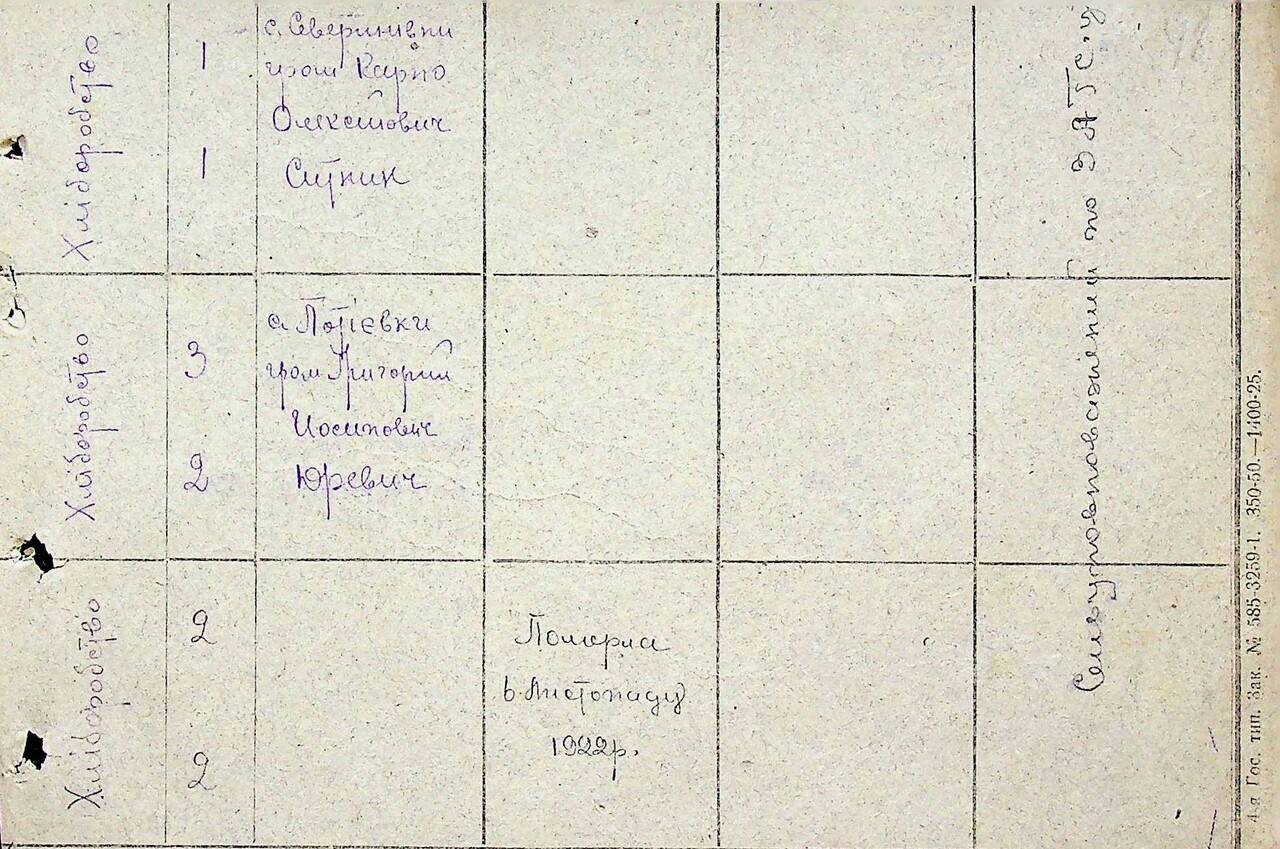 Хліборобство
1
1
с. Северинивки
гром Карпо
Олексійович
Ситник
Хліборобство
3
2
с. Потіевки
гром Григорий
Иосипович
Юревич
Хліборобство
2
2
Померла
в Листопаду
1922р.
по ЗАГС.у
4-я Гос. тип. Зак. № 585-3259-1. 350-50.—1400-25.